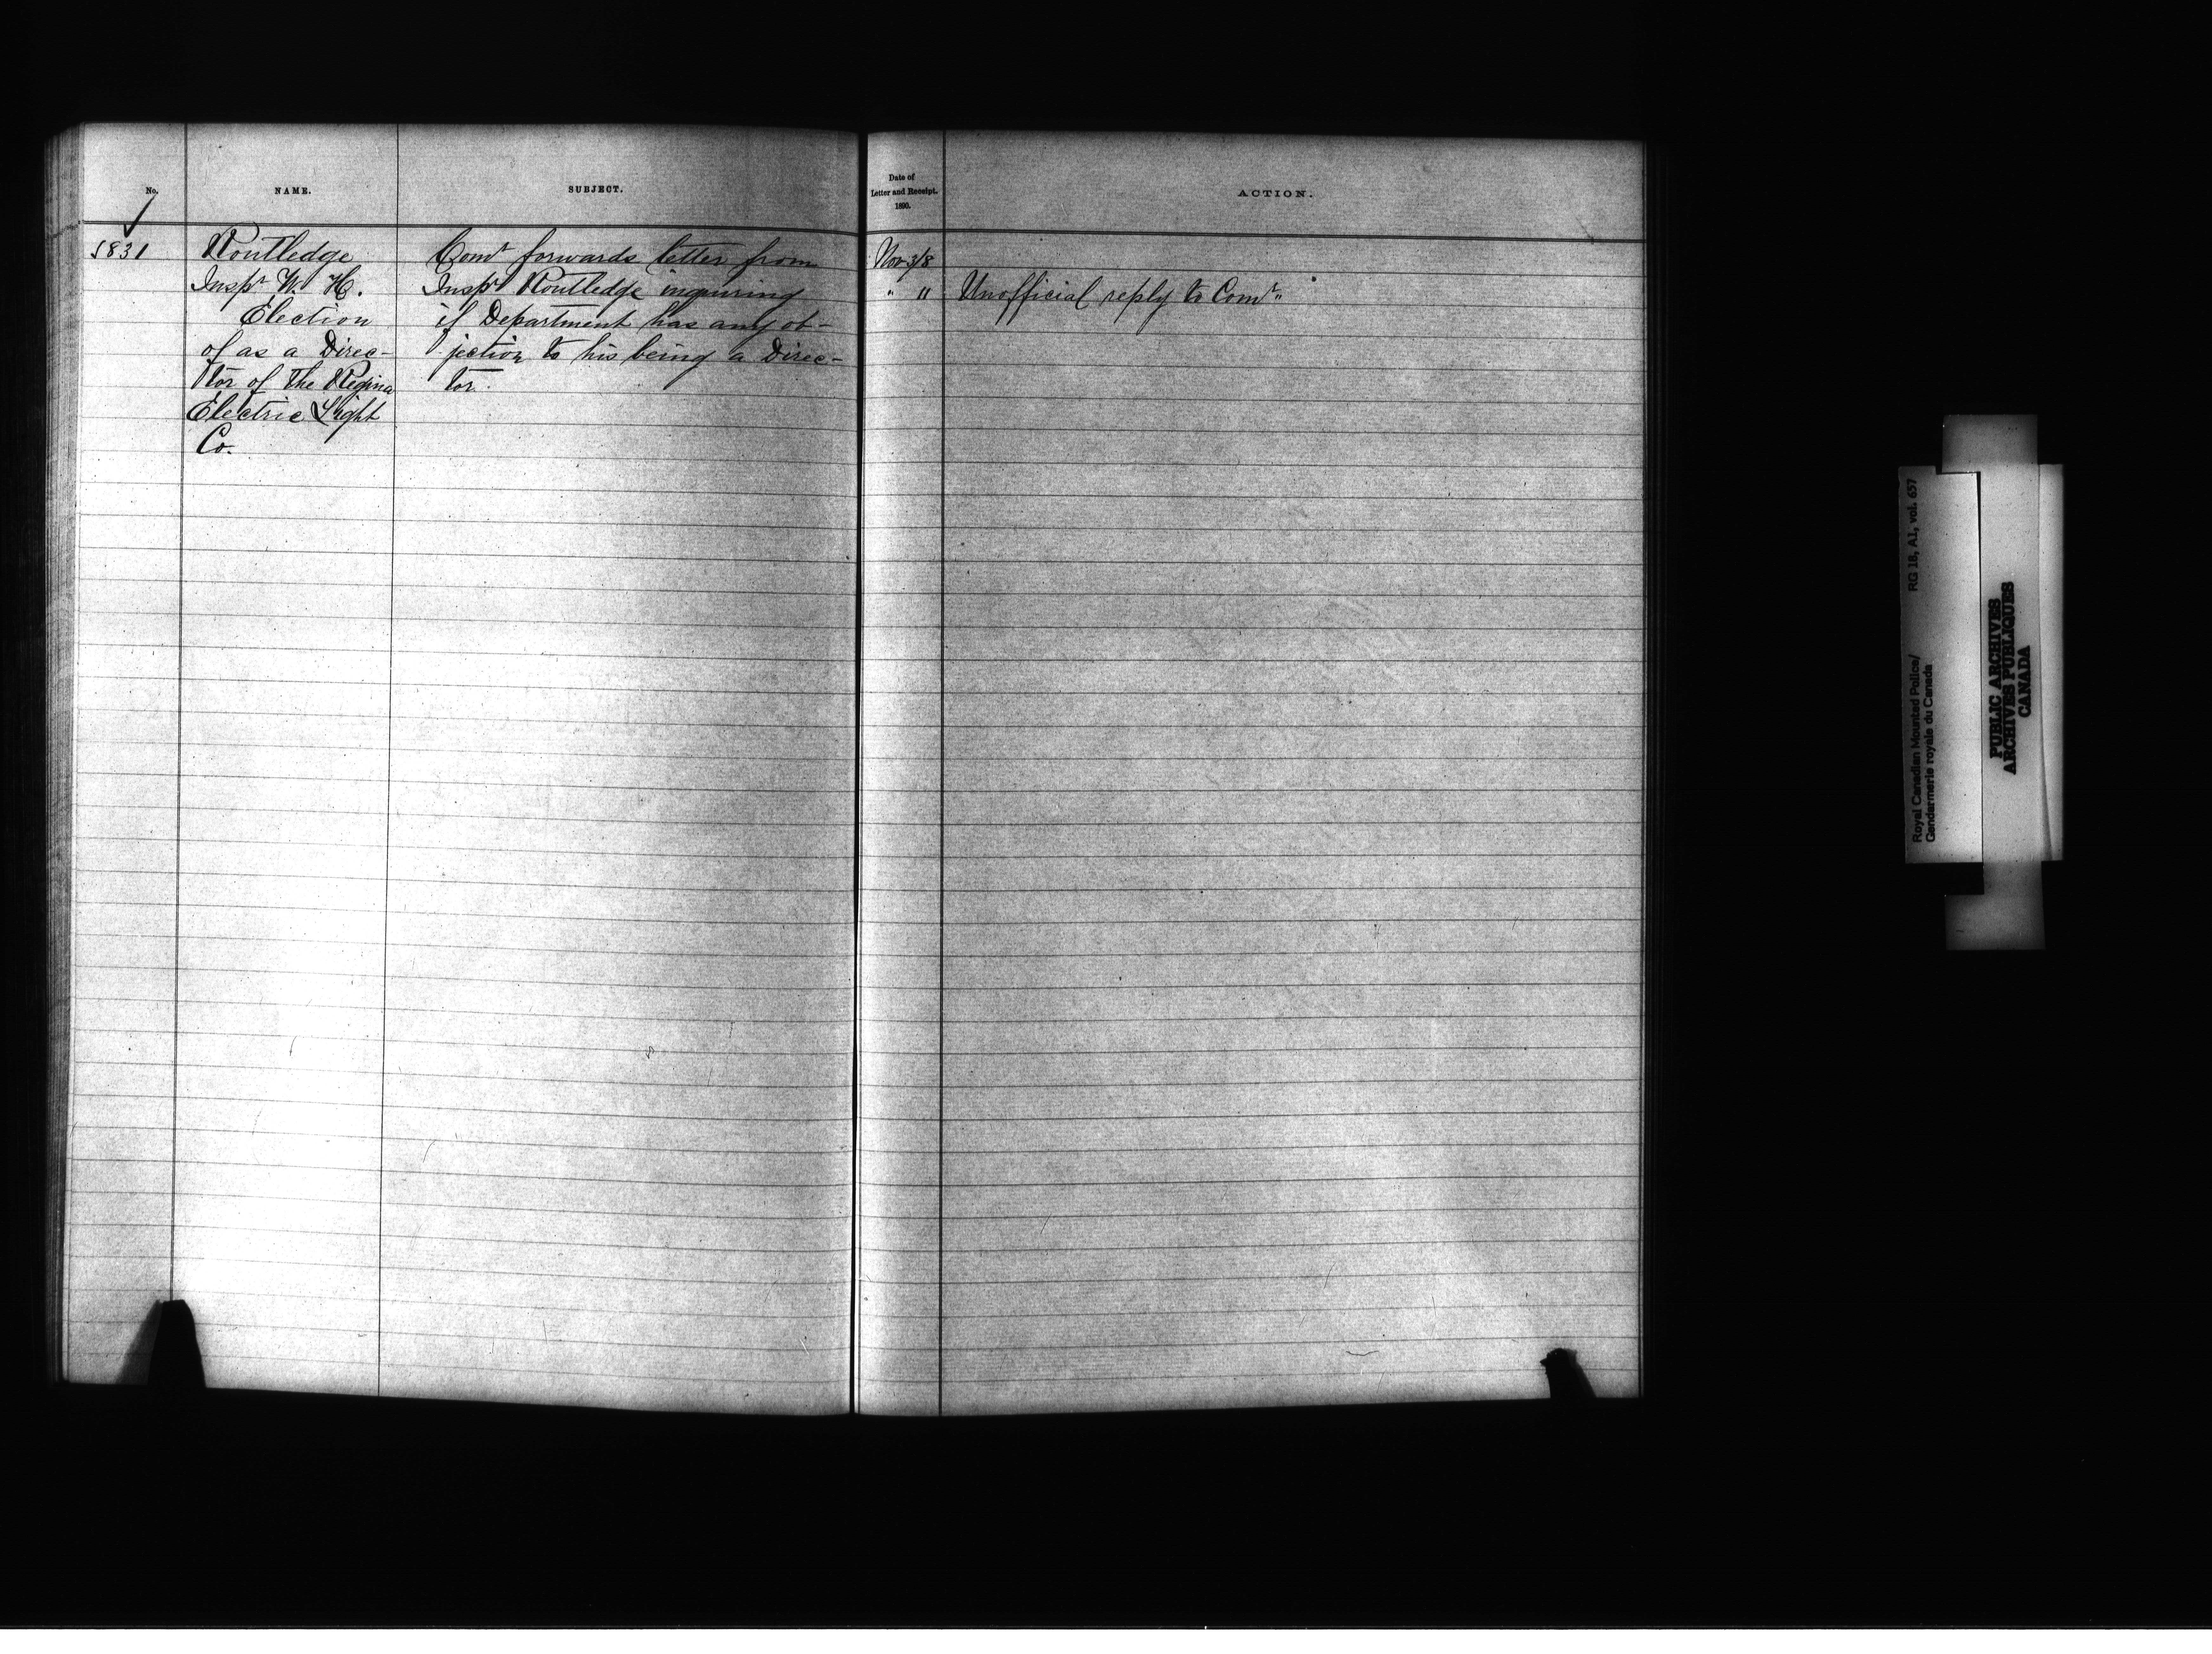 No.
NAME.
SUBJECT.
Date of
Letter and Receipt.
1890.
ACTION.
1831
Routledge
Inspr W. H.
Election
of as a Direc-
tor of the Regina
Electric Light
Co.
Comr forwards letter from
Inspr Routledge inquiring
if Department has any ob-
jection to his being a Direc-
tor.
Nov 3/8
" 11
Unofficial reply to Comr
Royal Canadian Mounted Police/ RG 18, A1, vol. 657
Gendarmerie royale du Canada
PUBLIC ARCHIVES
ARCHIVES PUBLIQUES
CANADA